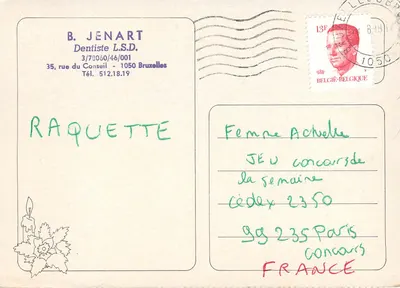 B. JENART
Dentiste L.S.D.
3/78060/46/001
35, rue du Conseil - 1050 Bruxelles
Tél. 512.18.19
13F
BELGIË-BELGIQUE
1050
RAQUETTE
Femme Actuelle
JEU concours de
la semaine
Cédex 2350
99235 Paris
concours
FRANCE